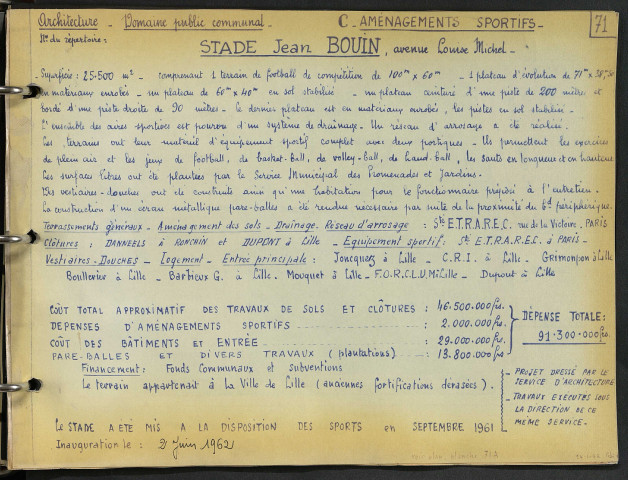 Architecture - Domaine public communal - C - AMÉNAGEMENTS SPORTIFS - 71
N° du répertoire:
STADE Jean BOUIN, avenue Louise Michel -
- Superficie: 25.500 m² - comprenant 1 terrain de football de compétition de 100m x 60m - 1 plateau d'évolution de 71m x
en matériaux enrobés - un plateau de 60m x 40m en sol stabilisé - un plateau ceinturé d'une piste de 200 mètres et
bordé d'une piste droite de 90 mètres - le dernier plateau est en matériaux enrobés, les pistes en sol stabilisé -
L'ensemble des aires sportives est pourvu d'un système de drainage - Un réseau d'arrosage a été réalisé.
Les terrains ont leur matériel d'équipement sportif complet avec deux portiques - Ils permettent les exercices
de plein air et les jeux de football, de basket-ball, de volley-ball, de hand-ball, les sauts en longueur et en hauteur
Les surfaces libres ont été plantées par le Service Municipal des Promenades et Jardins.
Des vestiaires-douches ont été construits ainsi qu'une habitation pour le fonctionnaire préposé à l'entretien.
La construction d'un écran métallique pare-balles a été rendue nécessaire par suite de la proximité du Bd périphérique.
Terrassements généraux - Aménagement des sols - Drainage. Réseau d'arrosage : Sté E.T.R.A.R.E.C. rue de la Victoire. PARIS
Clôtures : DANNEELS à RONCHIN et DUPONT à Lille - Equipement sportif: Sté E.T.R.A.R.E.C à PARIS -
Vestiaires-Douches - Logement - Entrée principale : Joncquez à Lille - C.R.I. à Lille - Grimonpon à Lille
Boullevier à Lille - Barbieux G. à Lille - Mouquet à Lille - F.O.R.C.L.U.M. Lille - Dupont à Lille
COÛT TOTAL APPROXIMATIF DES TRAVAUX DE SOLS ET CLÔTURES : 46.500.000 frs.
DÉPENSES D'AMÉNAGEMENTS SPORTIFS : 2.000.000 frs.
DÉPENSE TOTALE:
91.300.000 frs
COÛT DES BÂTIMENTS ET ENTRÉE : 29.000.000 frs.
PARE-BALLES ET DIVERS TRAVAUX (plantations) : 13.800.000 frs.
Financement: Fonds Communaux et subventions
Le terrain appartenait à la Ville de Lille (anciennes fortifications dérasées).
- PROJET DRESSÉ PAR LE
SERVICE D'ARCHITECTURE
- TRAVAUX EXÉCUTÉS SOUS
LA DIRECTION DE CE
MÊME SERVICE -
LE STADE A ÉTÉ MIS A LA DISPOSITION DES SPORTS en SEPTEMBRE 1961
Inauguration le : 2 Juin 1962